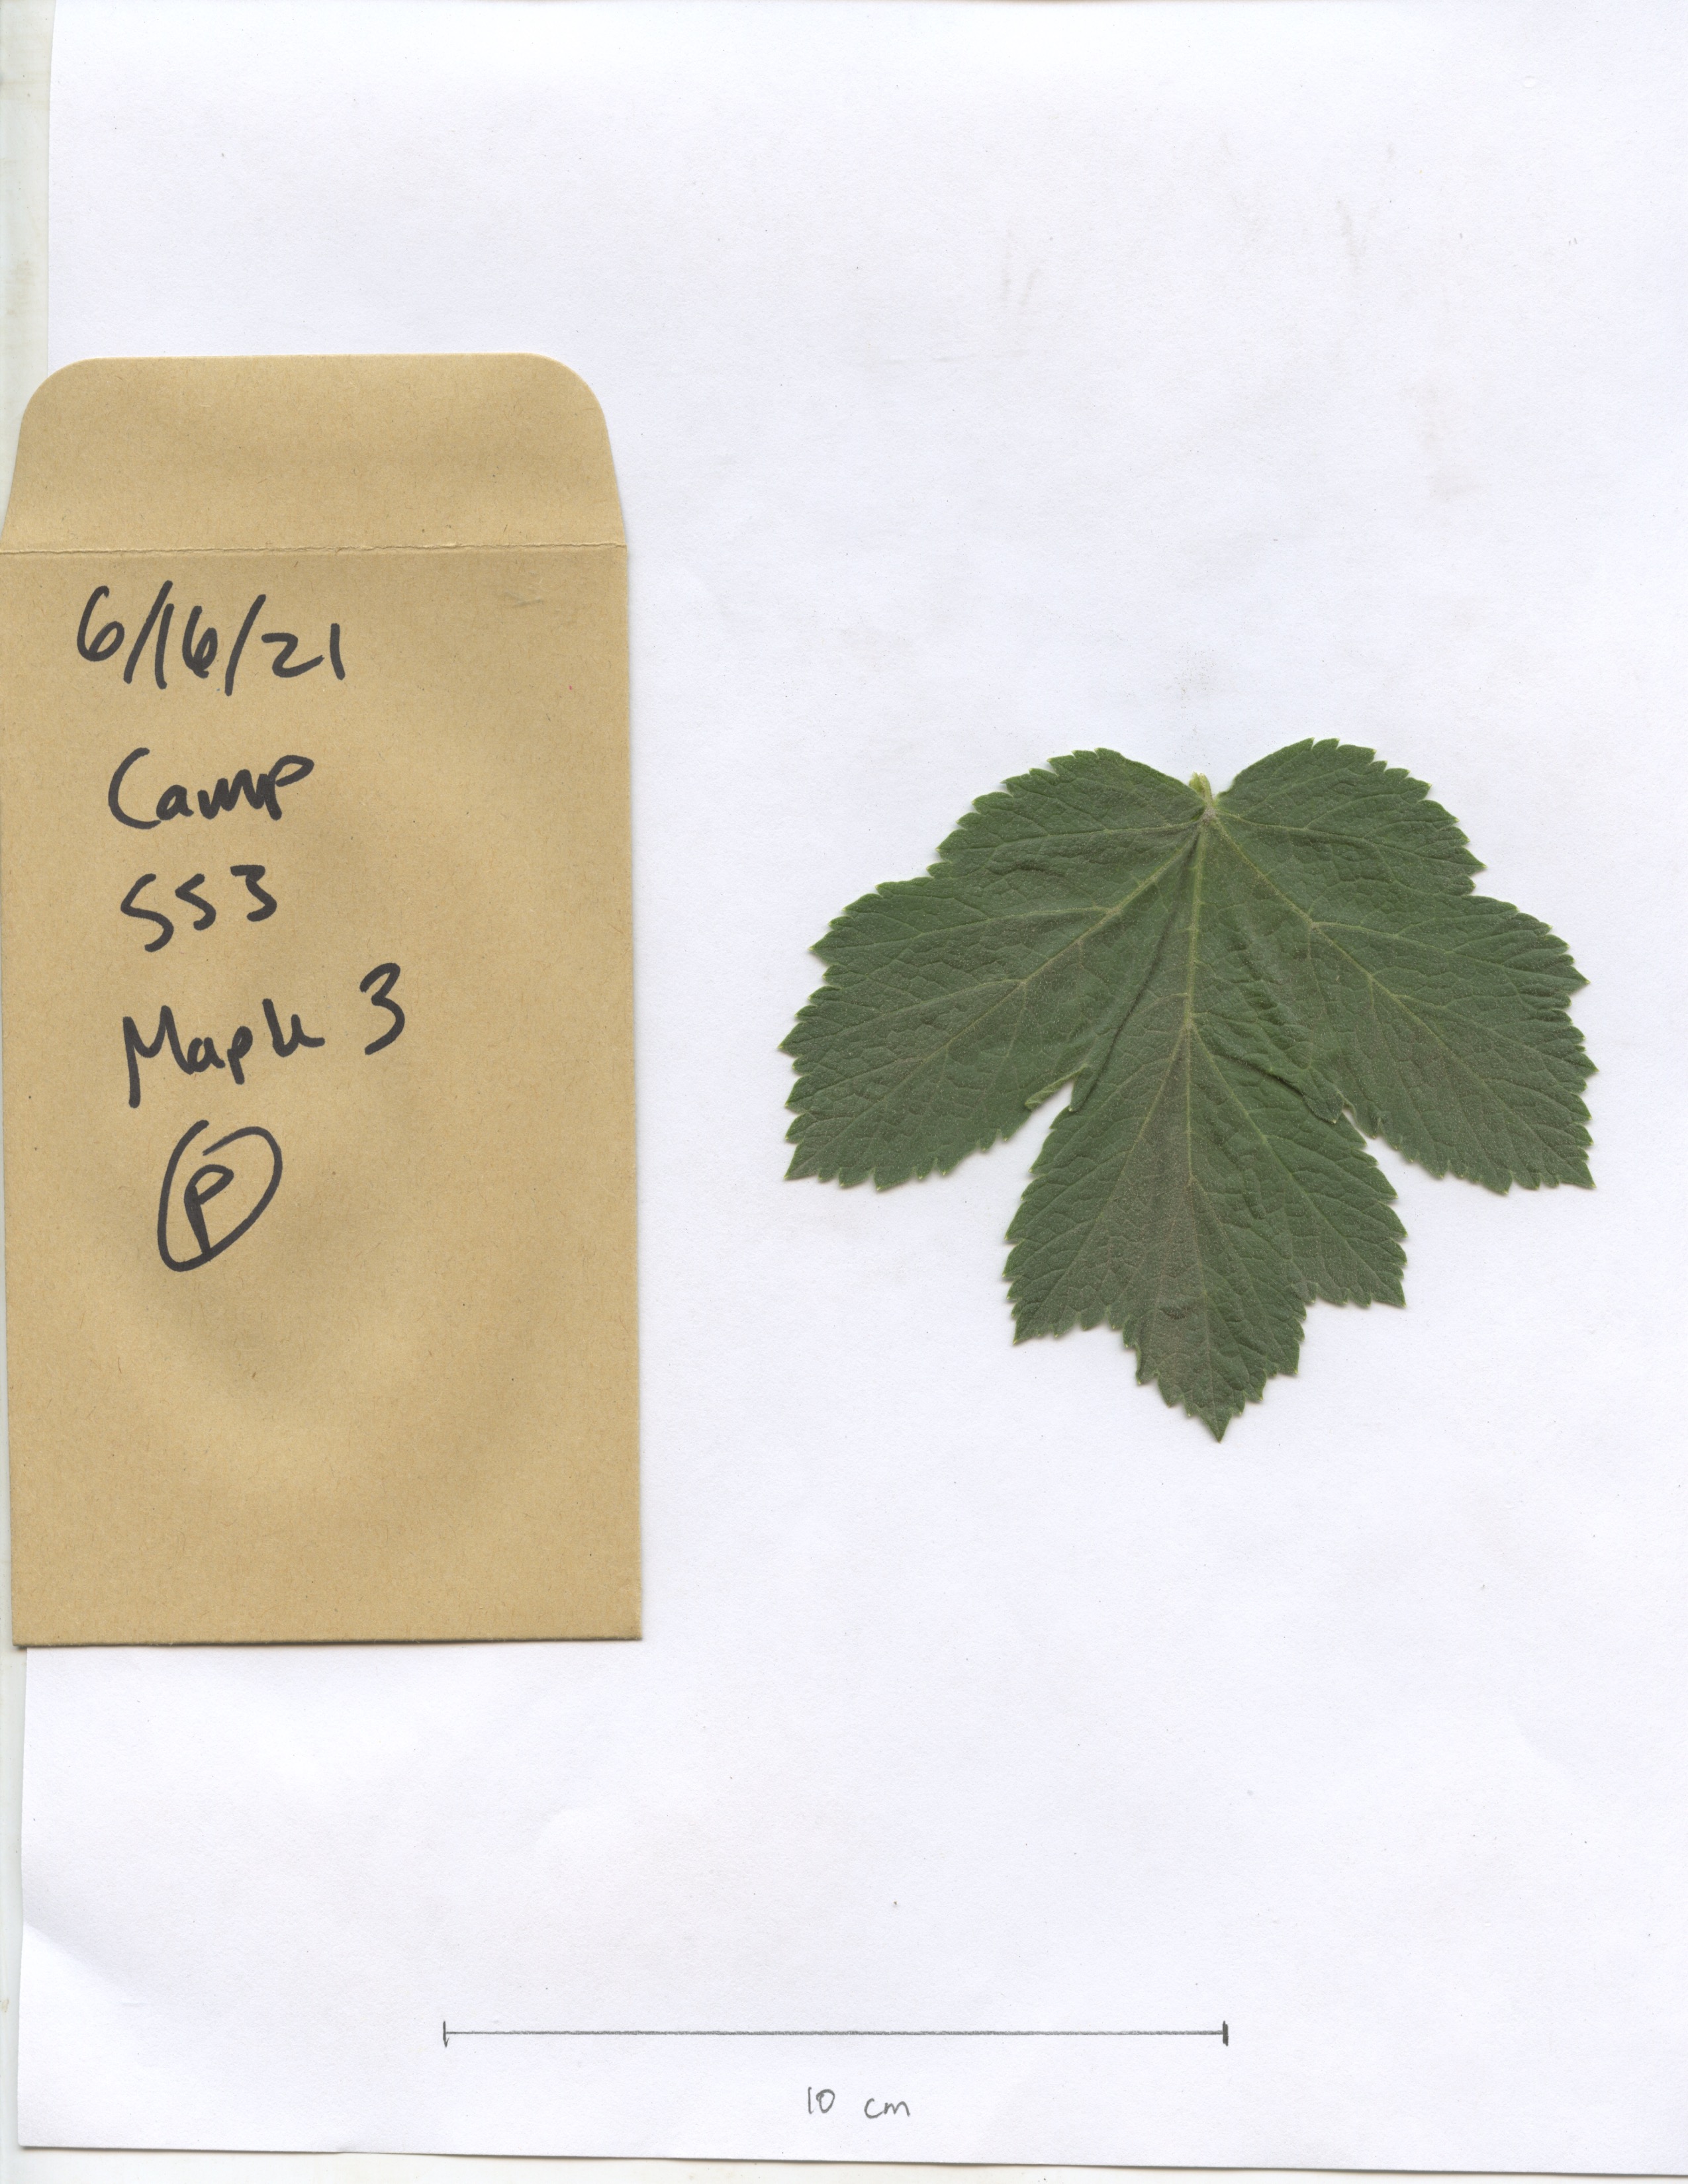 6/16/21
Camp
SS3
Maple 3
P
10 cm